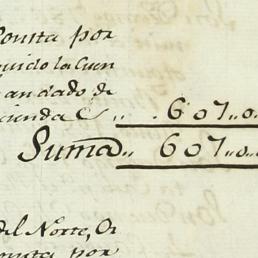 Consta por
quido la Cuen
andado de
cienda &.. .. 607..0
Suma.. 607..0
del Norte, Or
onsta por